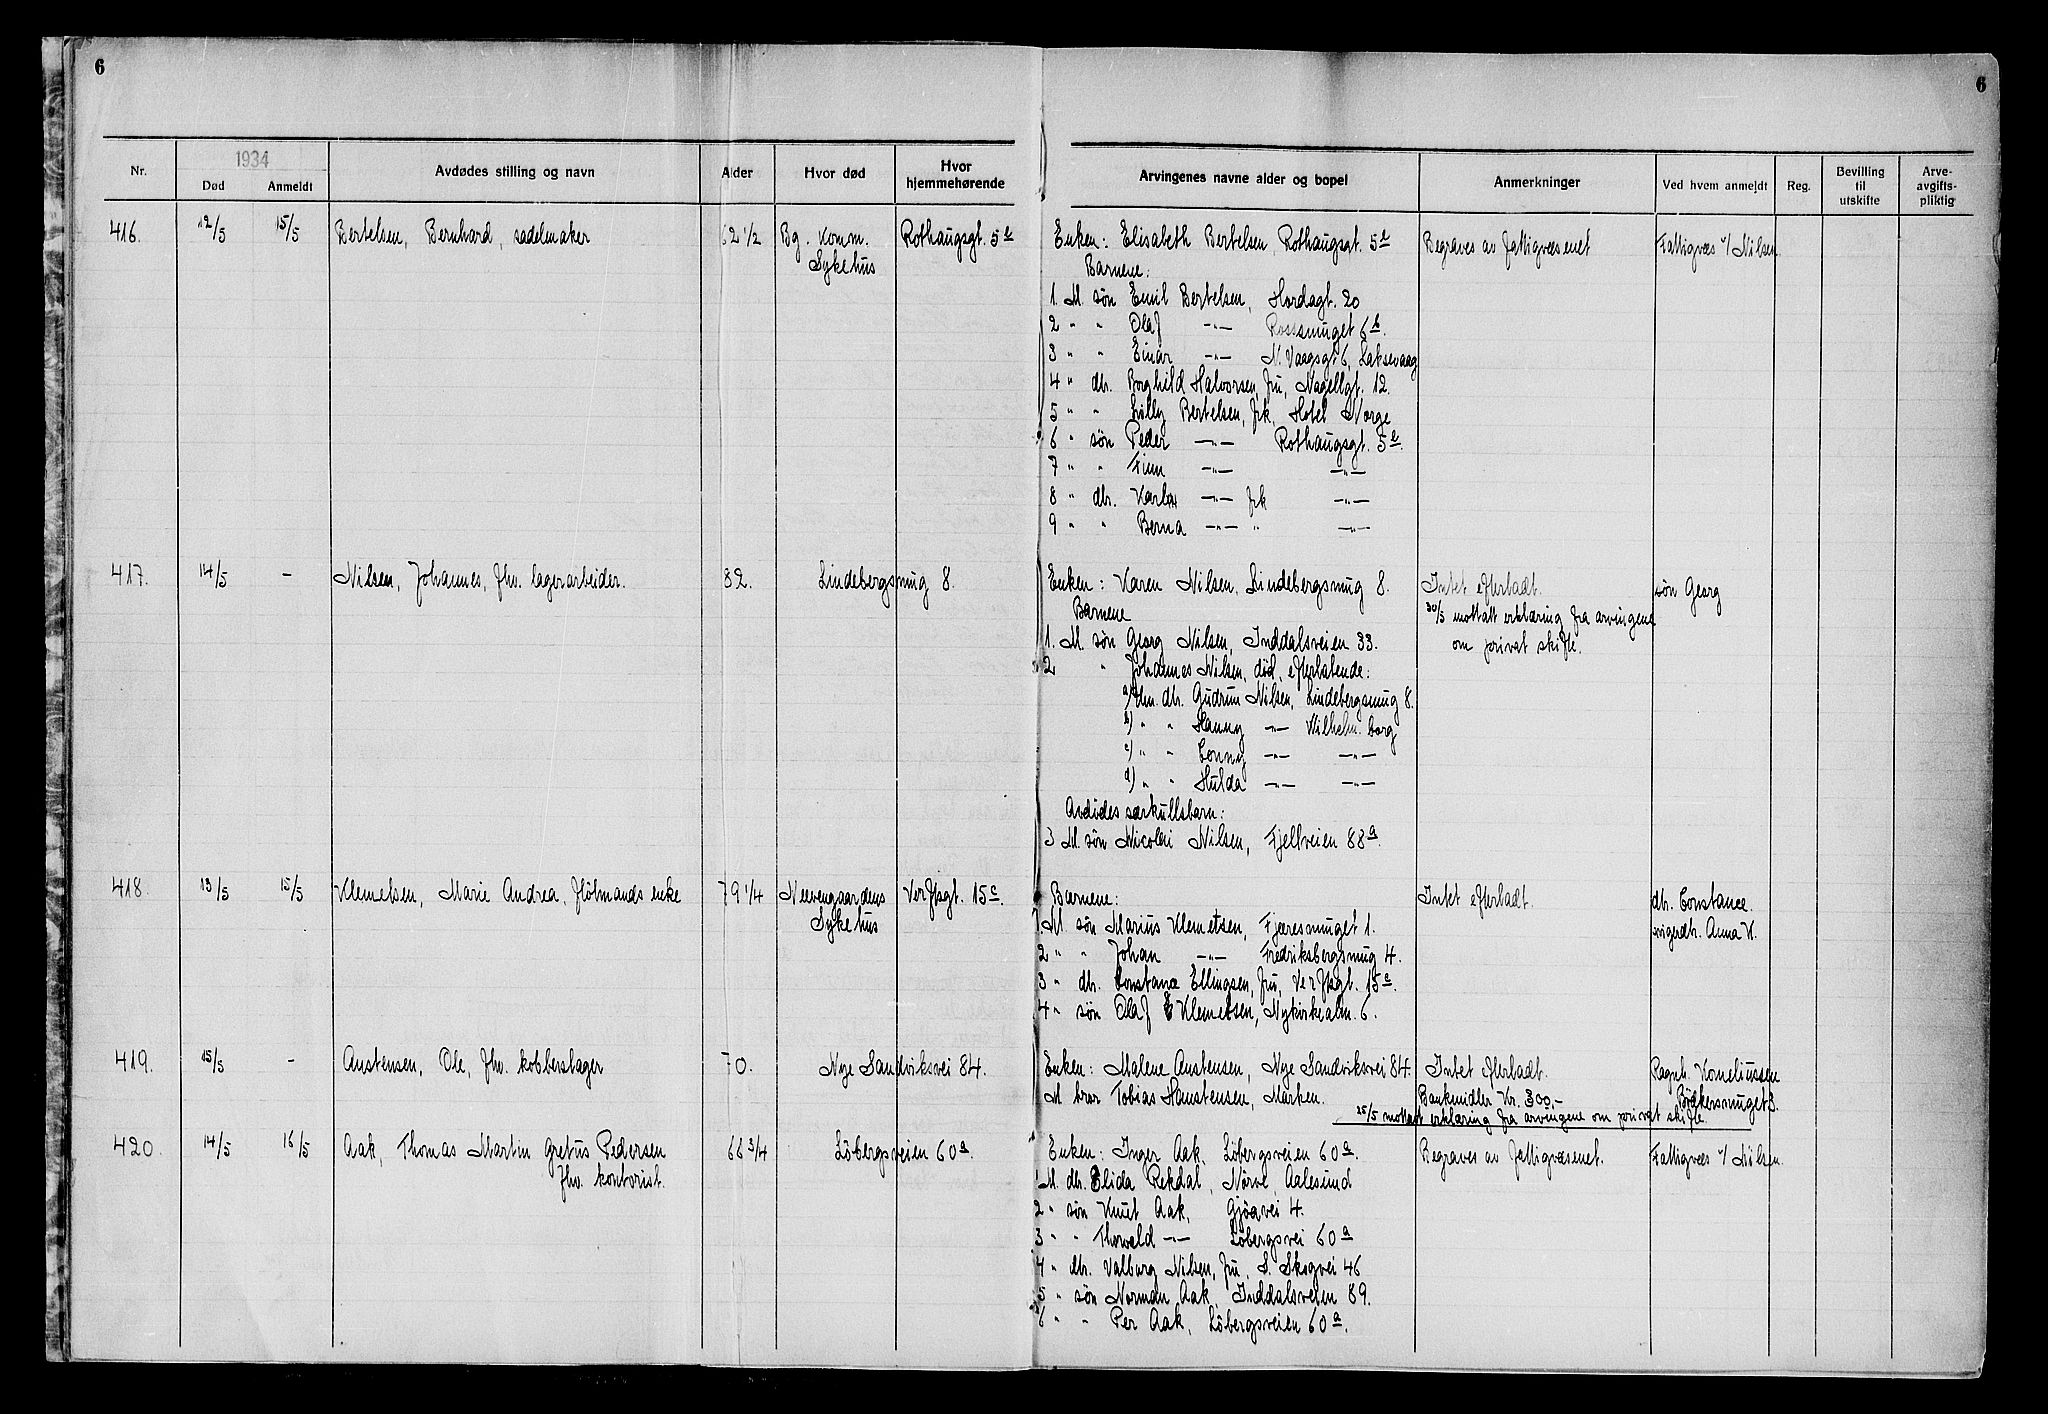 6
6
Nr.
1934
Død
Anmeldt
Avdødes stilling og navn
Alder
Hvor død
Hvor
hjemmehørende
Arvingenes navne alder og bopel
Anmerkninger
Ved hvem anmeldt
Reg.
Bevilling
til
utskifte
Arve-
avgifts-
pliktig
416. 12/5 15/5 Bertelsen, Bernhard, sadelmaker 62 1/2 Bg. Komm. Rothaugsgt. 5e Enken: Elisabeth Bertelsen, Rothaugsgt. 5e Begraves av fattigvæsenet Fattigvæs v/ Nilsen
Sykehus Barnene:
1. M. søn Emil Bertelsen, Hardagt. 20
2 " " Olaf -"- Rosesmuget 6b
3 " " Einar -"- N. Vaagsgt. 6, Laksevaag
4 " dtr. Borghild Halvorsen, fru, Nagellgt. 12.
5 " " Lolly Bertelsen, frk, Hotel Norge
6 " søn Peder -"- Rothaugsgt. 5e.
7 " " Finn -"- -"-
8 " dtr. Karla -"- frk -"-
9 " " Berna -"- " -"-
417. 14/5 - Nilsen, Johannes, fhv. lagerarbeider. 82. Lindebergsmug 8. Enken: Karen Nilsen, Lindebergsmug 8. Intet efterladt. søn Georg
Barnene 30/5 mottatt erklæring fra arvingene
1. M. søn Georg Nilsen, Inddalsveien 33. om privat skifte.
2 " Johannes Nilsen, død, efterlatende:
a) Um. dtr. Gudrun Nilsen, Lindebergsmug 8.
b) " " Hanny -"- Wilhelm. borg
c) " " Conny -"- -"-
d) " " Hulda -"- -"-
Avdødes særkullsbarn:
3 M. søn Nicolai Nilsen, Fjellveien 88a.
418. 13/5 15/5 Klemetsen, Marie Andrea, fløtmands enke 79 1/4 Neevengaardens Verftsgt. 15c. Barnene: Intet efterladt. dtr. Constance.
Sykehus 1. M. søn Marius Klemetsen, Fjæresmuget 1. svigerdtr. Anna K.
2 " " Johan -"- Fredriksbergsmug 4.
3 " dtr. Constance Ellingsen, fru, Verftsgt. 15c.
4 " søn Olaf E Klemetsen, Nykirkealm. 6.
419. 15/5 - Austensen, Ole, fhv. kobberslager 70. Nye Sandviksvei 84. Enken: Malene Austensen, Nye Sandviksvei 84. Intet efterladt. Ragnh. Korneliussen
M. bror Tobias Haustensen, Marken. Bankmidler Kr. 300,- Brækersmuget 3.
25/5 mottatt erklæring fra arvingene om privat skifte.
420. 14/5 16/5 Aak, Thomas Martin Gretus Pedersen 66 3/4 Løbergsveien 60a. Enken: Inger Aak, Løbergsveien 60a. Begraves av fattigvæsenet. Fattigvæs v/ Nilsen.
fhv. kontorist. 1 M. dtr. Elida Rekdal, Nørve, Aalesund
2 " søn Knut Aak, Gjøavei 4.
3 " " Thorvald -"- Løbergsvei 60a
4 " dtr. Valborg Nilsen, fru, S. Skogvei 46
5 " søn Norman Aak, Inddalsveien 89.
6 " " Per Aak, Løbergsveien 60a.